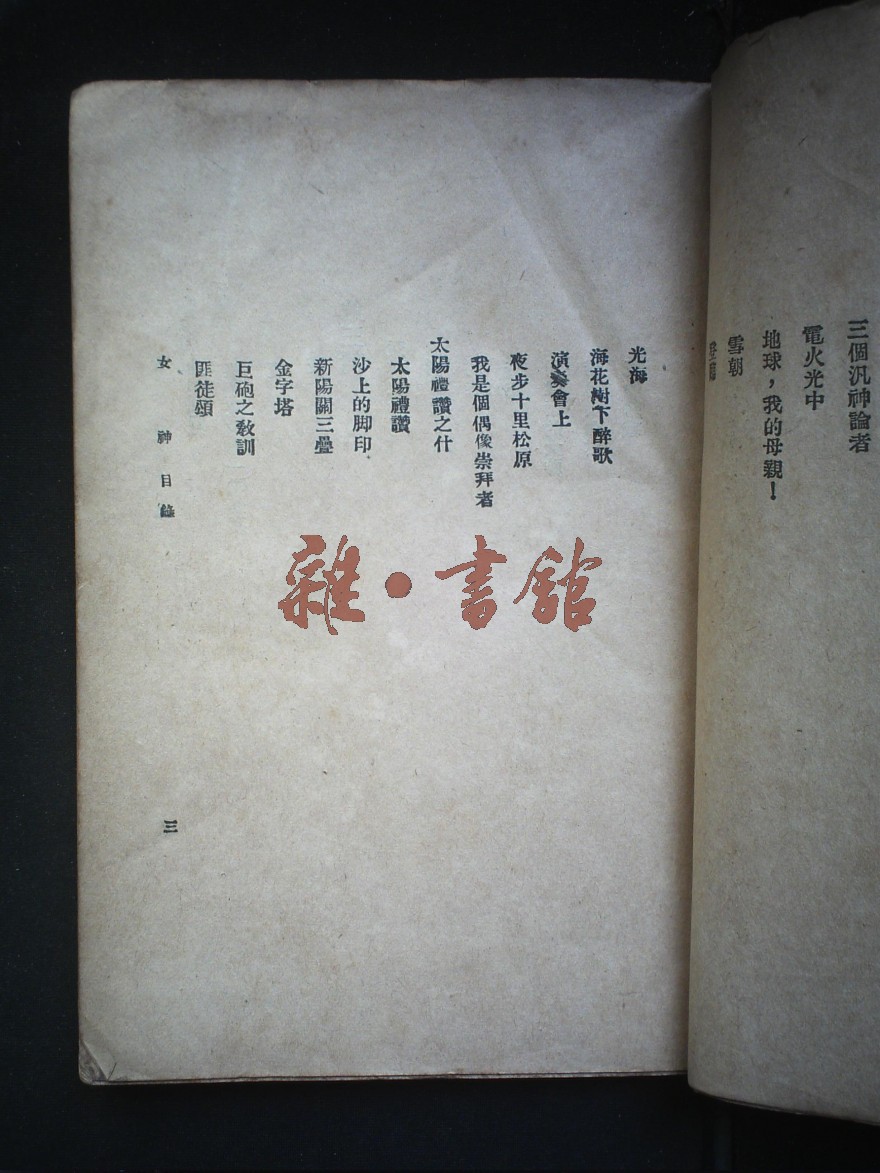 三個汎神論者
電火光中
地球，我的母親！
雪朝
登臨
光海
梅花樹下醉歌
演奏會上
夜步十里松原
我是個偶像崇拜者
太陽禮讚之什
太陽禮讚
沙上的脚印
新陽關三疊
金字塔
巨砲之敎訓
匪徒頌
女神目錄
三
雜·書館